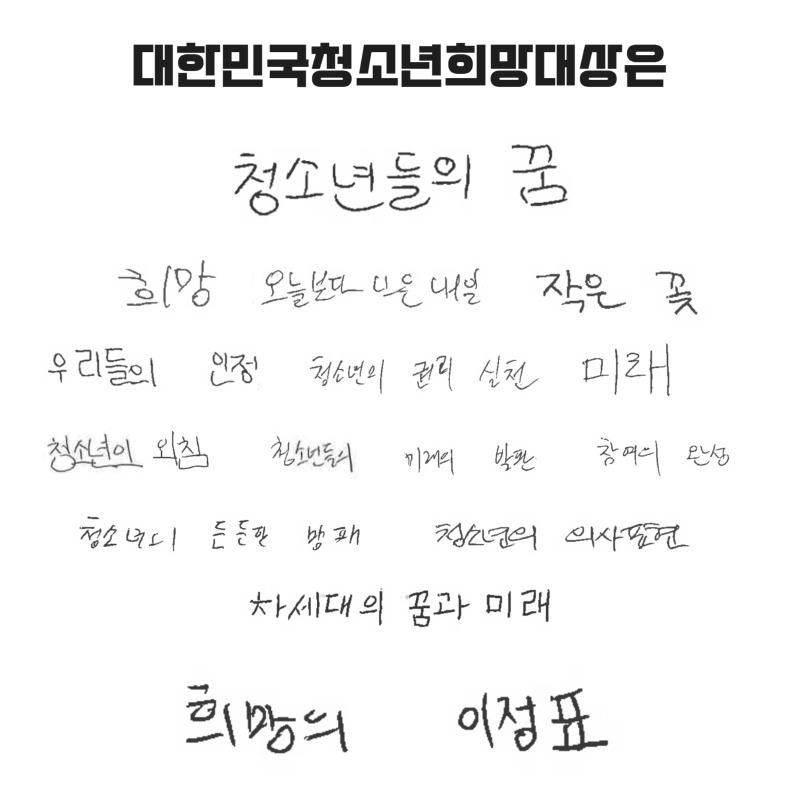 대한민국청소년희망대상은
청소년들의 꿈
희망 오늘보다 나은 내일 작은 꽃
우리들의 인정 청소년의 권리 실천 미래
청소년의 외침 청소년들의 미래의 발판 참여의 완성
청소년의 든든한 방패 청소년의 의사표현
차세대의 꿈과 미래
희망의 이정표